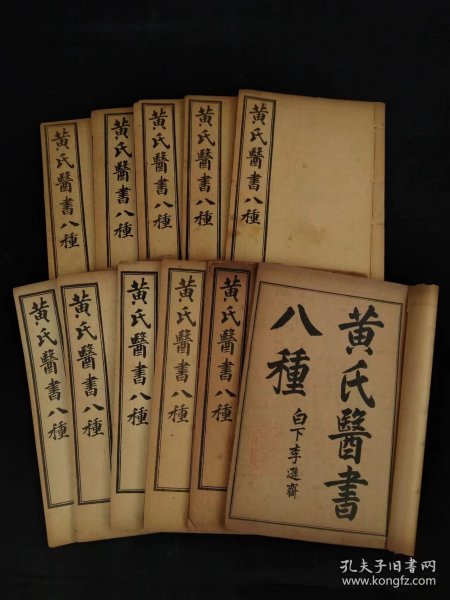 黄氏醫書八種
黄氏醫書八種
黄氏醫書八種
黄氏醫書八種
黄氏醫書八種
黄氏醫書八種
黄氏醫書八種
黄氏醫書八種
黄氏醫書八種
黄氏醫書八種
黄氏醫書
八種
白下李選齋
孔夫子旧书网
www.kongfz.com